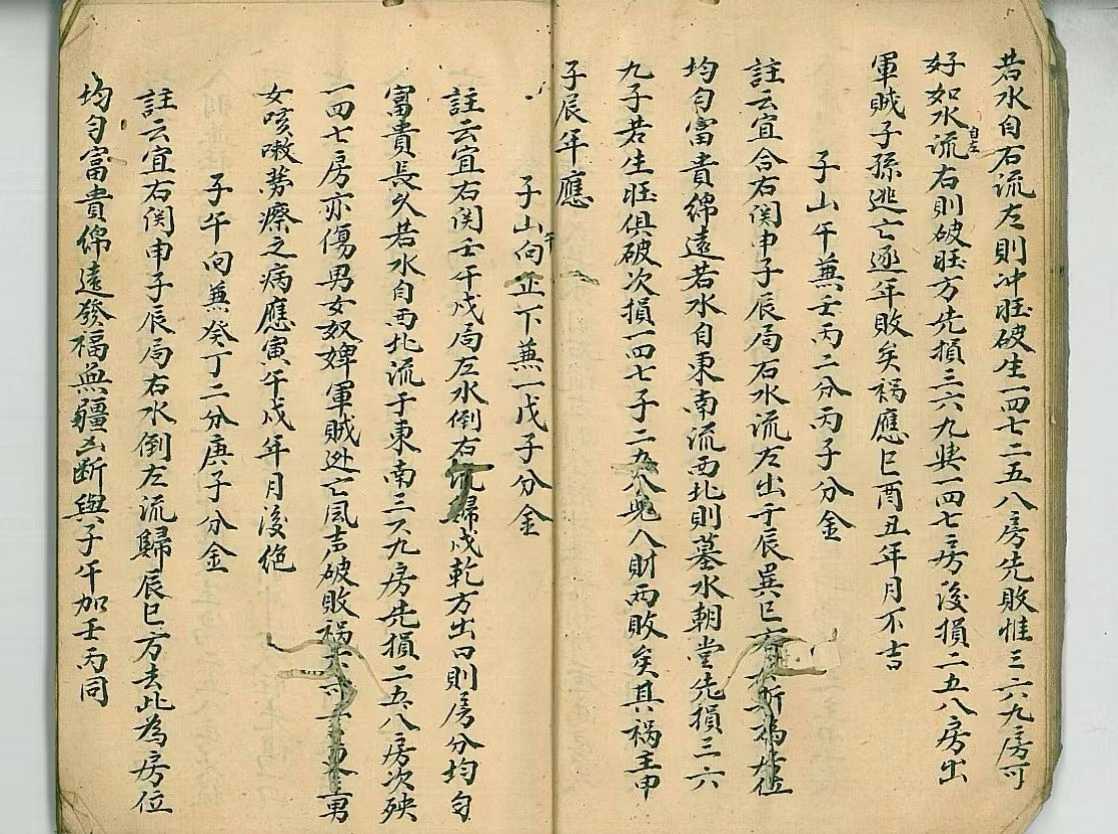 若水自右流左則冲旺破生一四七二五八房先敗惟三六九房可
好如水自左流右則破旺方先損三六九與一四七房後損二五八房出
軍賊子孫逃亡逐年敗矣禍應巳酉丑年月不吉
子山午兼壬丙二分丙子分金
註云宜合右関申子辰局石水流左出于辰巽巳
均匀富貴綿遠若水自東南流西北則墓水朝堂先損三六
九子若生旺俱破次損一四七子二九八鬼人財両敗矣其禍主申
子辰年應
子山午向正下兼一戊子分金
註云宜右関壬午戍局左水倒右流歸戍乾方出口則房分均匀
富貴長久若水自西北流于東南三六九房先損二五八房次殃
一四七房亦傷男女奴婢軍賊迯亡風声破敗禍男
女咳嗽劳瘵之病應寅午戍年月後绝
子午向兼癸丁二分庚子分金
註云宜右関申子辰局右水倒左流歸辰巳方去此為房位
均匀富貴綿遠發福無疆凶断與子午加壬丙同